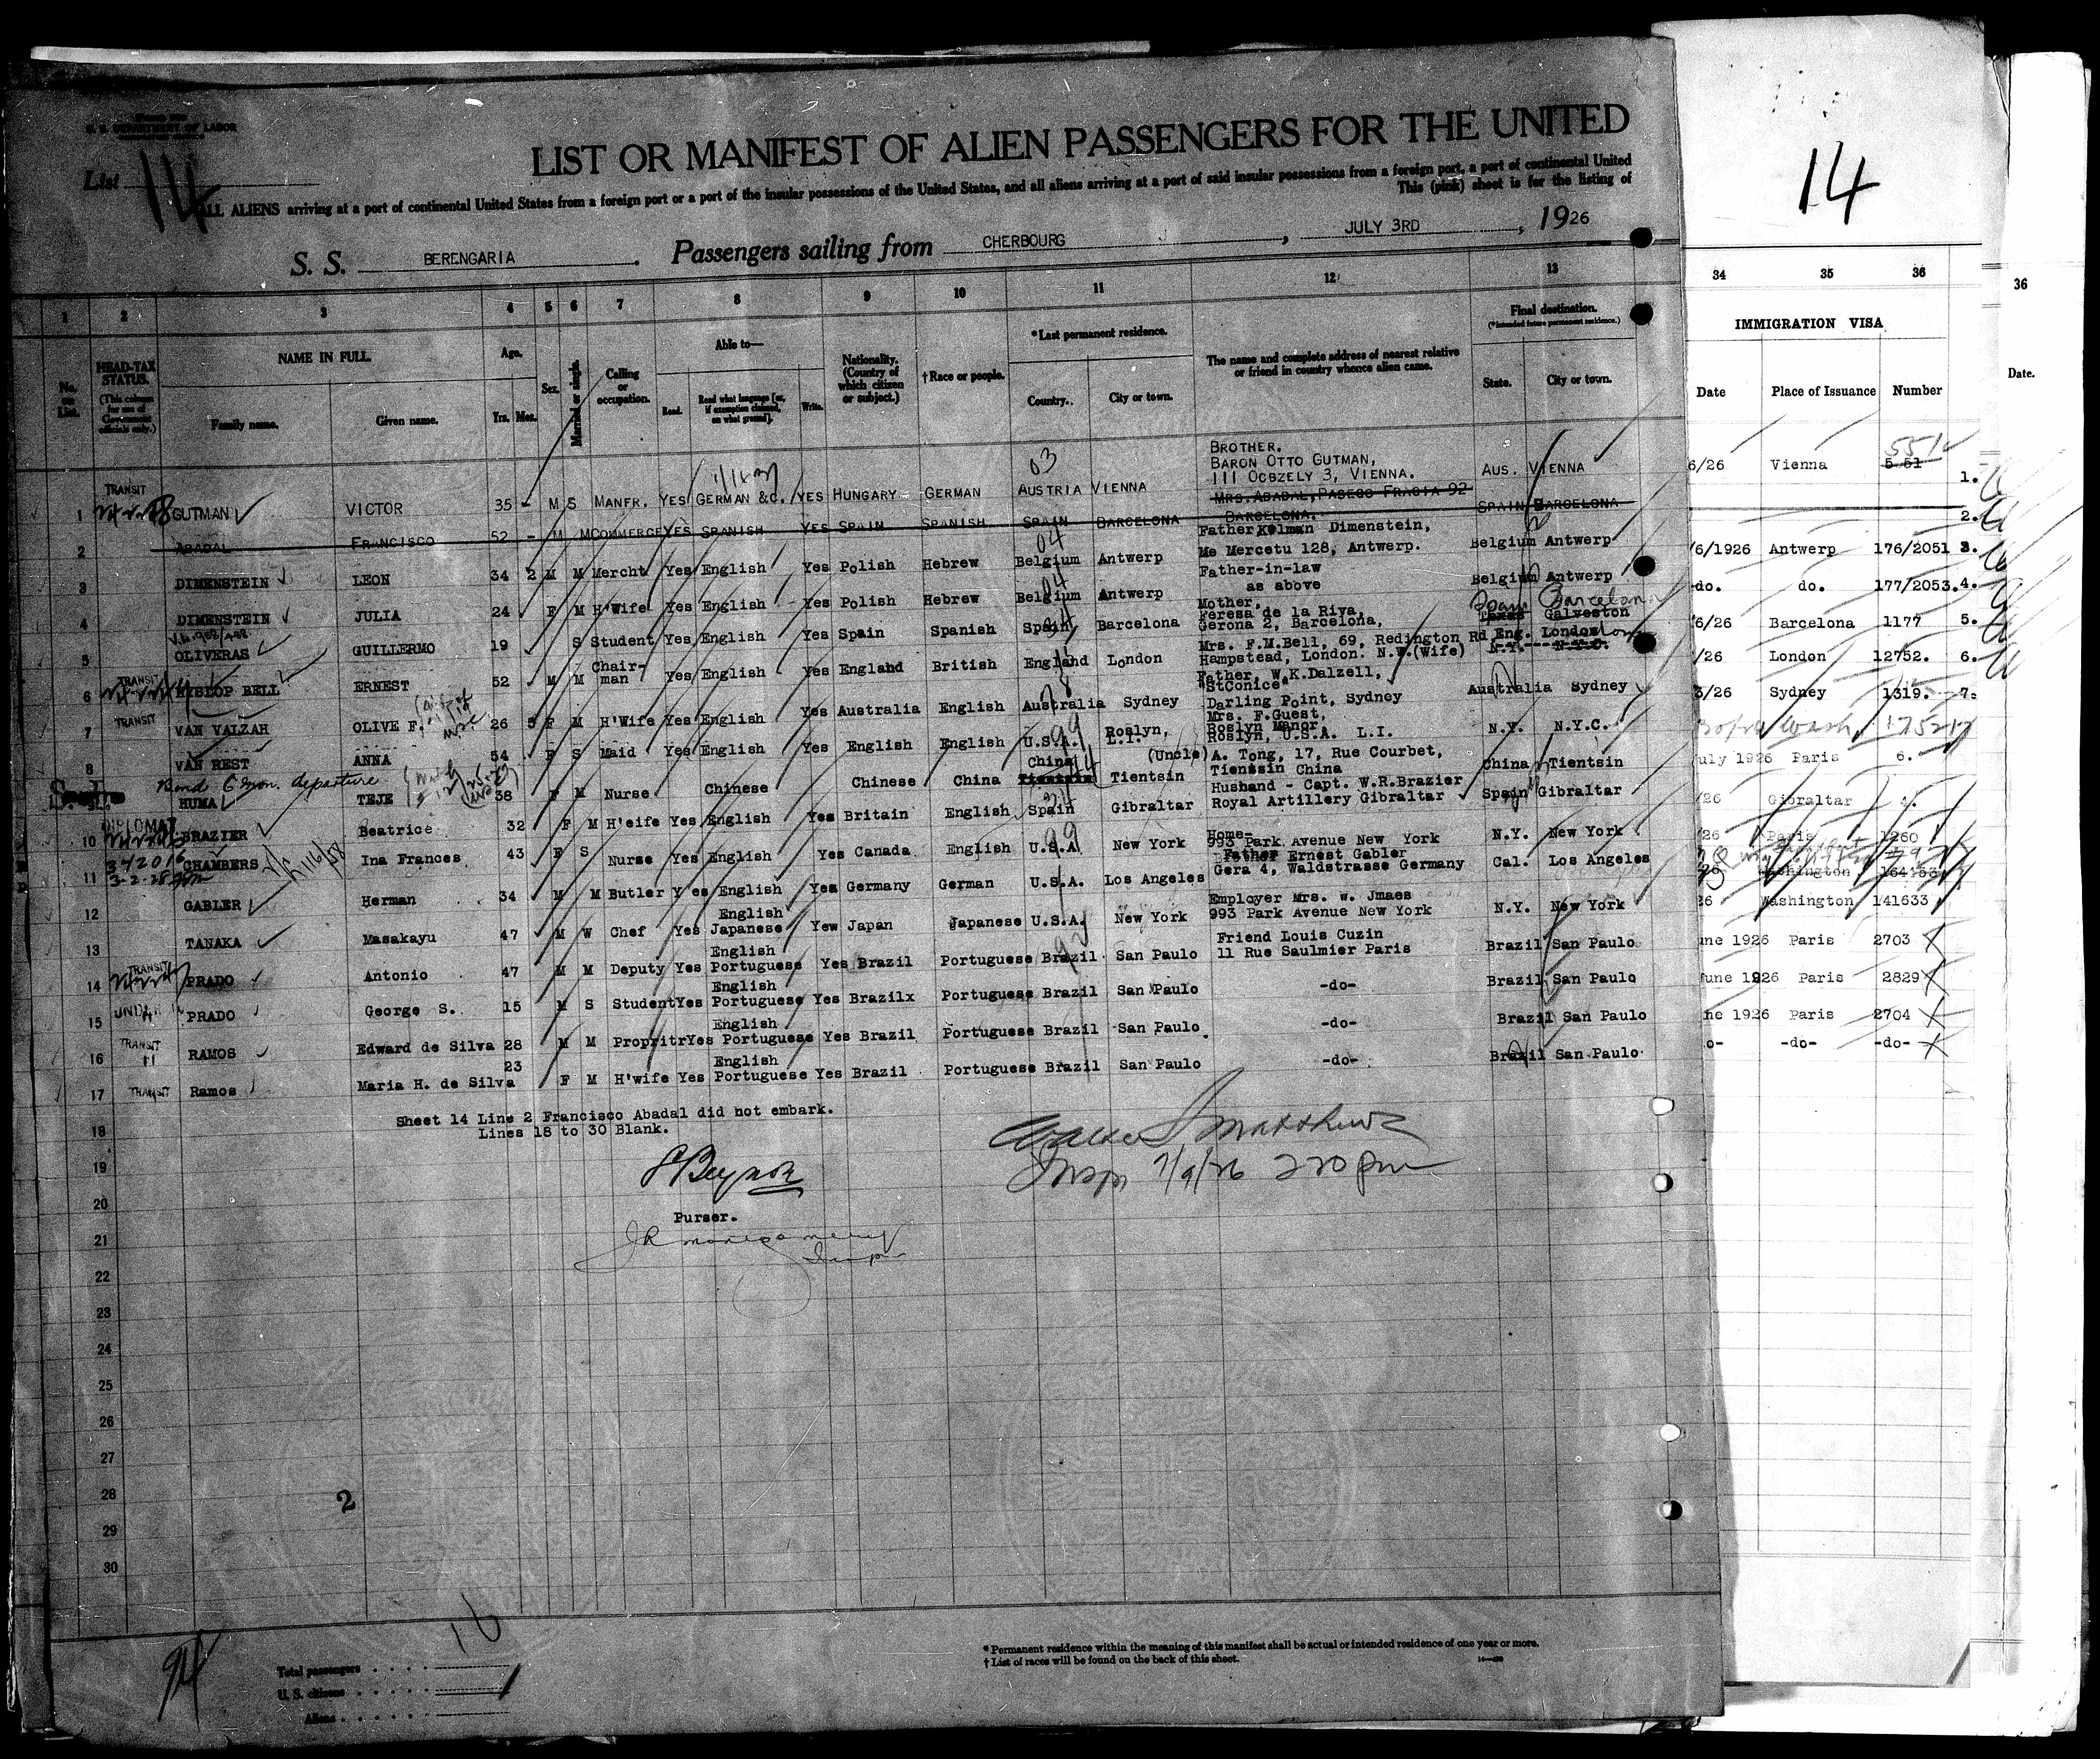 U. S. DEPARTMENT OF LABOR
List 14
LIST OR MANIFEST OF ALIEN PASSENGERS FOR THE UNITED
ALL ALIENS arriving at a port of continental United States from a foreign port or a port of the insular possessions of the United States, and all aliens arriving at a port of said insular possessions from a foreign port, a port of continental United
This (pink) sheet is for the listing of
14
S. S. BERENGARIA. Passengers sailing from CHERBOURG, JULY 3RD, 1926
1 2 3 4 5 6 7 8 9 10 11 12 13 34 35 36 36
No. on List. HEAD-TAX STATUS. (This column for use of Government officials only.) NAME IN FULL. Age. Sex. Married or single. Calling or occupation. Able to— Nationality. (Country of which citizen or subject.) †Race or people. *Last permanent residence. The name and complete address of nearest relative or friend in country whence alien came. Final destination. (*Intended future permanent residence.) IMMIGRATION VISA
Family name. Given name. Yrs. Mos. Read. Read what language [or, if exemption claimed, on what ground]. Write. Country. City or town. State. City or town. Date Place of Issuance Number Date.
1 TRANSIT GUTMAN VICTOR 35 - M S MANFR. YES GERMAN &C. YES HUNGARY GERMAN AUSTRIA VIENNA BROTHER. BARON OTTO GUTMAN, 111 OCBZELY 3, VIENNA. AUS. VIENNA 6/26 Vienna 5 51 551 1.
2 ABADAL FRANCISCO 52 - M M COMMERCE YES SPANISH YES SPAIN SPANISH SPAIN BARCELONA MRS. ABADAL, PASEGO FRACIA 92 BARCELONA. SPAIN BARCELONA 2.
3 DIMENSTEIN LEON 34 2 M M Mercht Yes English Yes Polish Hebrew Belgium Antwerp Father Kelman Dimenstein, Me Mercetu 128, Antwerp. Belgium Antwerp /6/1926 Antwerp 176/2051 3.
4 DIMENSTEIN JULIA 24 F M H'Wife Yes English Yes Polish Hebrew Belgium Antwerp Father-in-law as above Belgium Antwerp -do. do. 177/2053. 4.
5 OLIVERAS GUILLERMO 19 S Student Yes English Yes Spain Spanish Spain Barcelona Mother, Teresa de la Riva, Gerona 2, Barcelona, Texas Galveston Spain Barcelona 6/26 Barcelona 1177 5.
6 TRANSIT HYSLOP BELL ERNEST 52 M M Chair-man Yes English Yes England British England London Mrs. F.M.Bell, 69, Redington Rd Hampstead, London. N.W.(Wife) Eng. London N.Y. N.Y.C. /26 London 12752. 6.
7 TRANSIT VAN VALZAH OLIVE F. 26 5 F M H'Wife Yes English Yes Australia English Australia Sydney Father, W.K.Dalzell, "StConice" Darling Point, Sydney Australia Sydney 3/26 Sydney 1319. 7.
8 VAN REST ANNA 54 F S Maid Yes English Yes English English U.S.A. Roslyn, L.I. Mrs. F.Guest, Roslyn Manor, Roslyn, U.S.A. L.I. N.Y. N.Y.C. Wash.
Bond 6 mon. departure
HUMA TEJE 38 F M Nurse Chinese Chinese China China Tientsin Tientsin (Uncle) A. Tong, 17, Rue Courbet, Tientsin China China Tientsin July 1926 Paris 6.
10 DIPLOMAT BRAZIER Beatrice 32 F M H'eife Yes English Yes Britain English Spain Gibraltar Husband - Capt. W.R.Brazier Royal Artillery Gibraltar Spain Gibraltar /26 Gibraltar 4.
11 342016 3-2-28 CHAMBERS Ina Frances 43 F S Nurse Yes English Yes Canada English U.S.A New York Home- 993 Park Avenue New York N.Y. New York /26 Paris 1260
12 GABLER Herman 34 M M Butler Y es English Yes Germany German U.S.A. Los Angeles Father Ernest Gabler Gera 4, Waldstrasse Germany Cal. Los Angeles 26 Washington 164153
13 TANAKA Masakayu 47 M W Chef Yes English Japanese Yew Japan Japanese U.S.A. New York Employer Mrs. W. Jmaes 993 Park Avenue New York N.Y. New York 26 Washington 141633
14 TRANSIT PRADO Antonio 47 M M Deputy Yes English Portuguese Yes Brazil Portuguese Brazil San Paulo Friend Louis Cuzin 11 Rue Saulmier Paris Brazil San Paulo une 1926 Paris 2703
15 PRADO George S. 15 M S Student Yes English Portuguese Yes Brazilx Portuguese Brazil San Paulo -do- Brazil San Paulo June 1926 Paris 2829
16 TRANSIT RAMOS Edward de Silva 28 M M Propritr Yes English Portuguese Yes Brazil Portuguese Brazil San Paulo. -do- Brazil San Paulo ne 1926 Paris 2704
17 TRANSIT Ramos Maria H. de Silva 23 F M H'wife Yes English Portuguese Yes Brazil Portuguese Brazil San Paulo -do- Brazil San Paulo o- -do- -do-
Sheet 14 Line 2 Francisco Abadal did not embark.
18 Lines 18 to 30 Blank.
Walter S Matthews
19
Insp 7/9/26 220 pm
20
Purser.
21 JR Montgomery
Insp
22
23
24
25
26
27
28
2
29
30
94
16
Total passengers
U. S. citizens
Aliens
* Permanent residence within the meaning of this manifest shall be actual or intended residence of one year or more.
† List of races will be found on the back of this sheet.